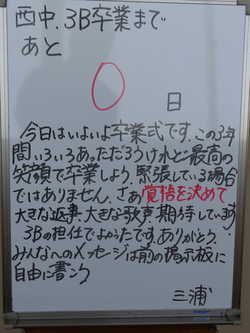 西中.3B卒業まで
あと
0日
今日はいよいよ卒業式です。この3年
間いろいろあっただろうけれど最高の
笑顔で卒業しよう。緊張している場合
ではありません。さあ覚悟を決めて
大きな返事、大きな歌声、期待しています
3Bの担任でよかったです。ありがとう。
みんなへのメッセージは前の掲示板に
自由に書こう
三浦